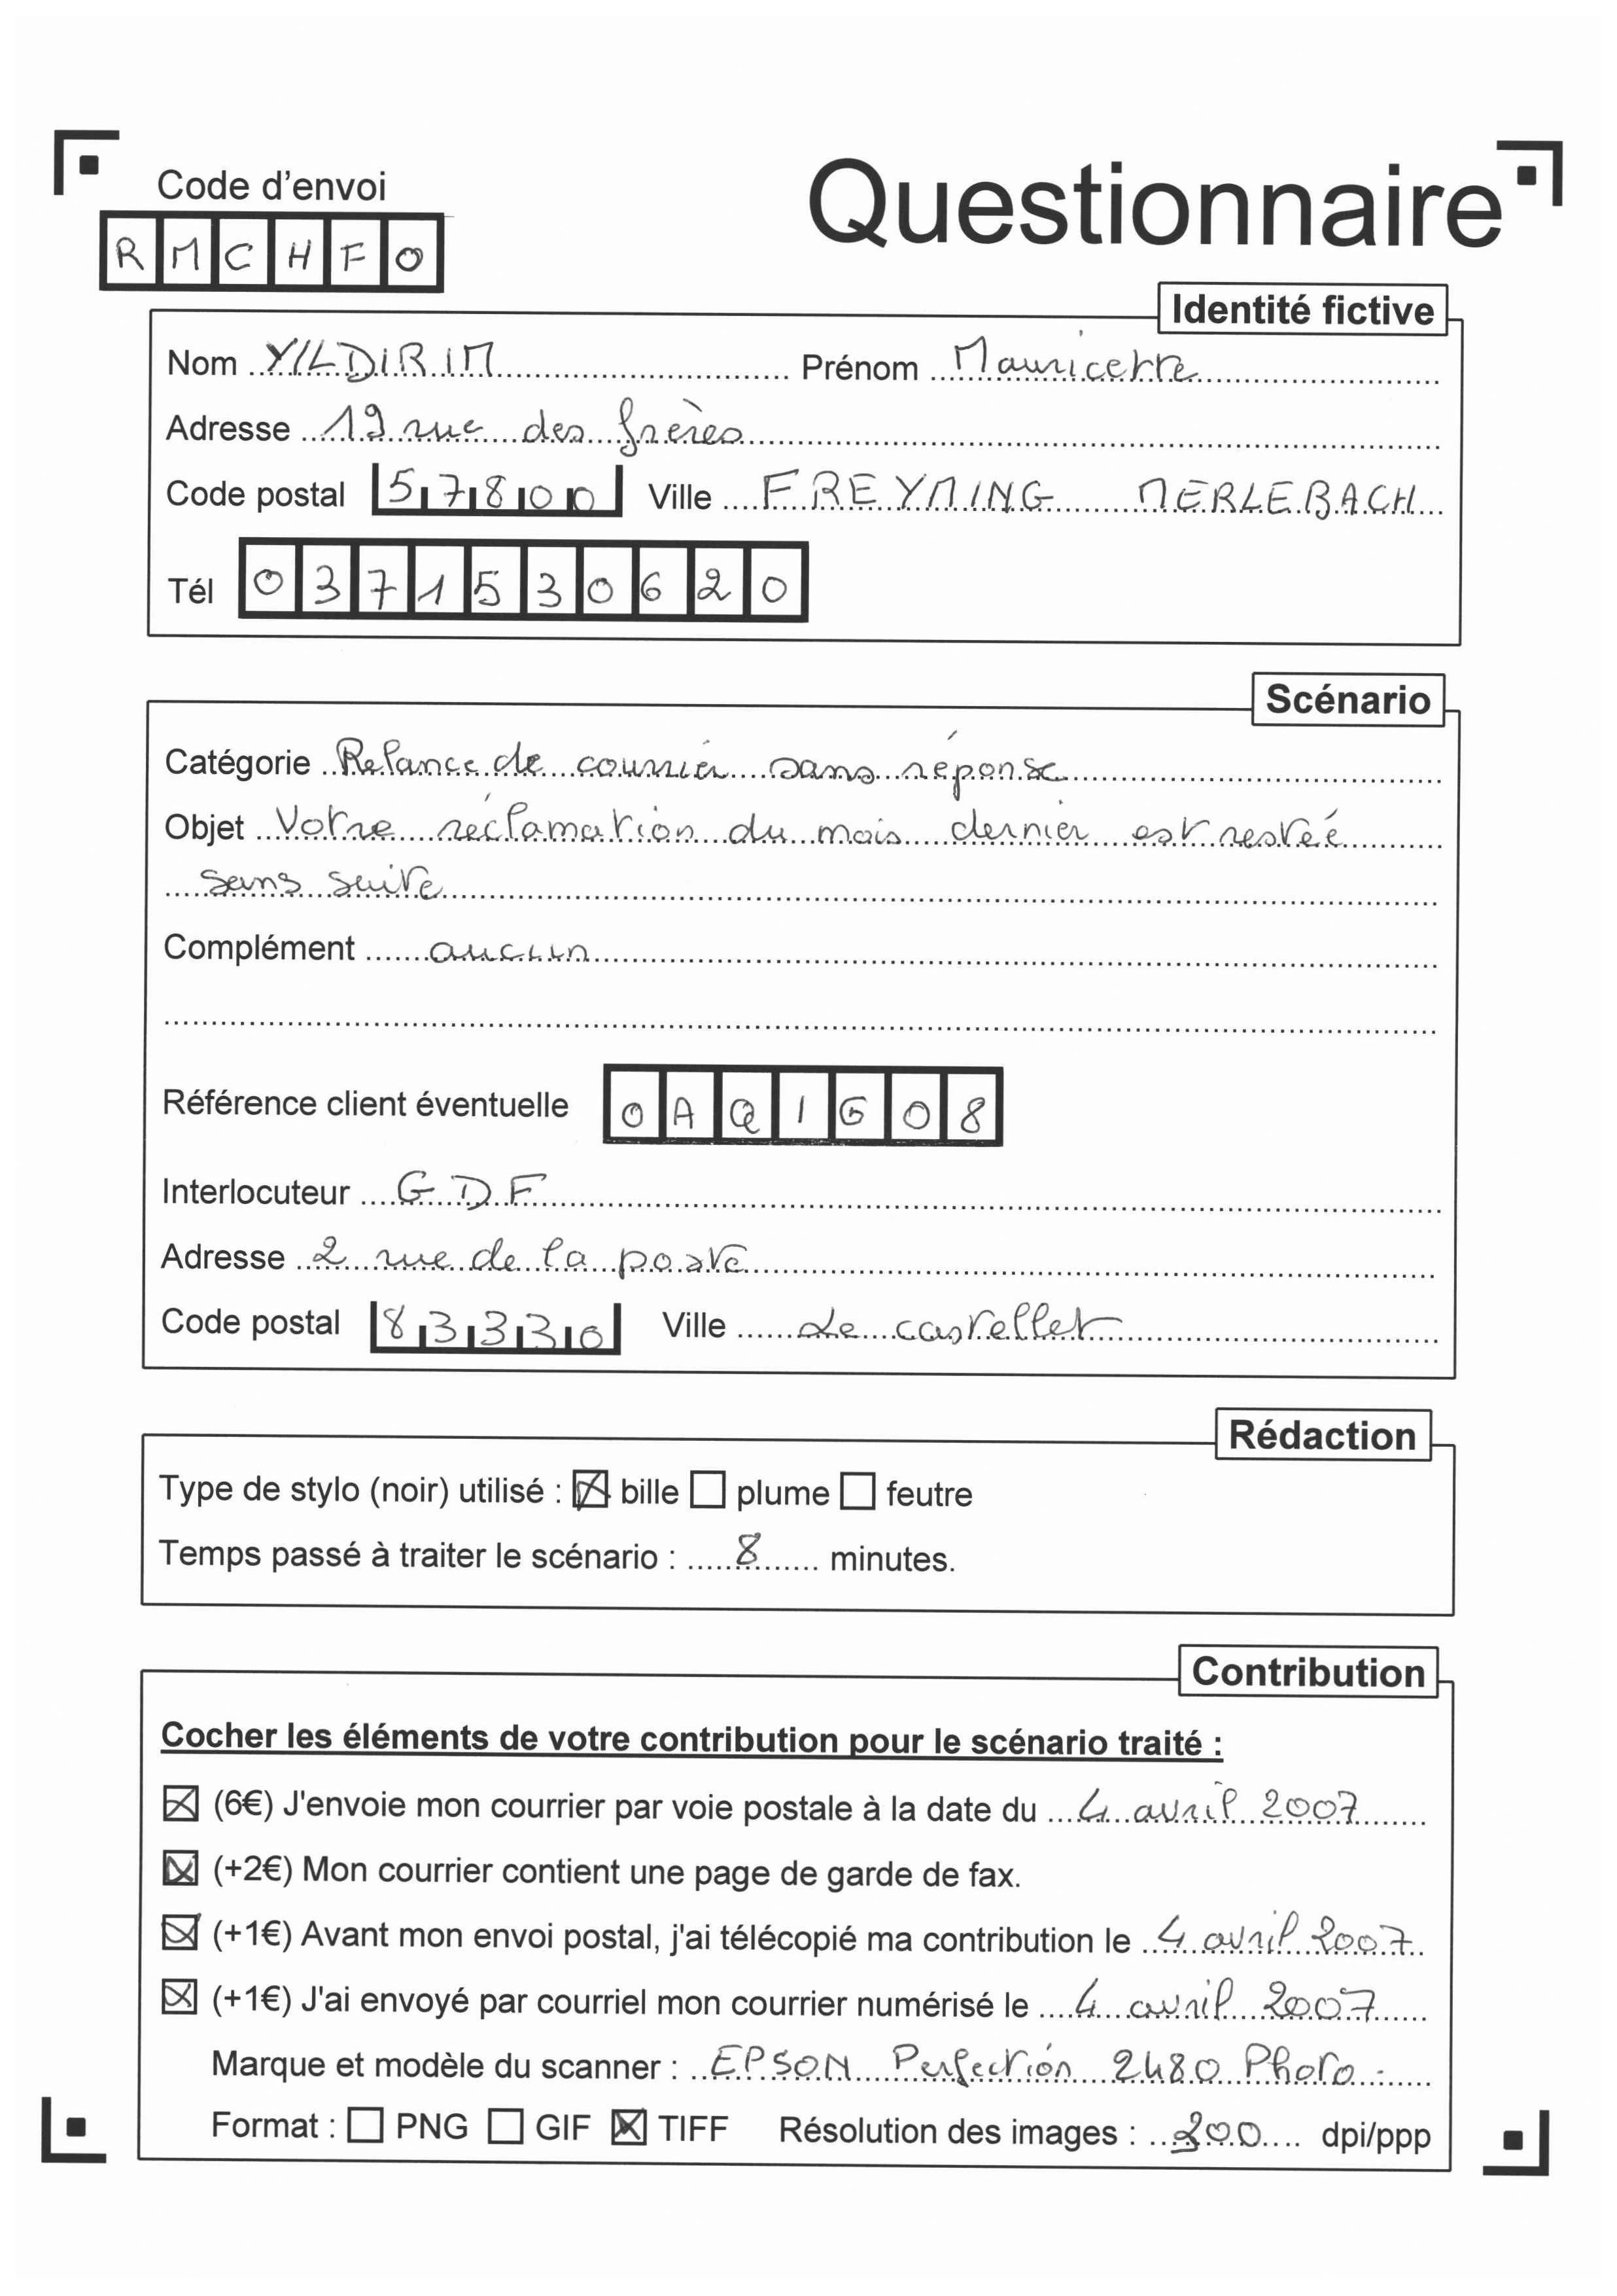 Code d'envoi
Questionnaire
RMCHFO
Identité fictive
Nom YILDIRIM Prénom Mauricette
Adresse 19 rue des frères
Code postal 57800 Ville FREYMING MERLEBACH
Tél 0371530620
Scénario
Catégorie Relance de courrier sans réponse
Objet Votre réclamation du mois dernier est restée
sans suite
Complément aucun
Référence client éventuelle 0AQ1G08
Interlocuteur GDF
Adresse 2 rue de la poste
Code postal 83330 Ville Le castellet
Rédaction
Type de stylo (noir) utilisé : bille plume feutre
Temps passé à traiter le scénario : 8 minutes.
Contribution
Cocher les éléments de votre contribution pour le scénario traité :
(6€) J'envoie mon courrier par voie postale à la date du 4 avril 2007
(+2€) Mon courrier contient une page de garde de fax.
(+1€) Avant mon envoi postal, j'ai télécopié ma contribution le 4 avril 2007
(+1€) J'ai envoyé par courriel mon courrier numérisé le 4 avril 2007
Marque et modèle du scanner : EPSON Perfection 2480 Photo
Format : PNG GIF TIFF Résolution des images : 200 dpi/ppp